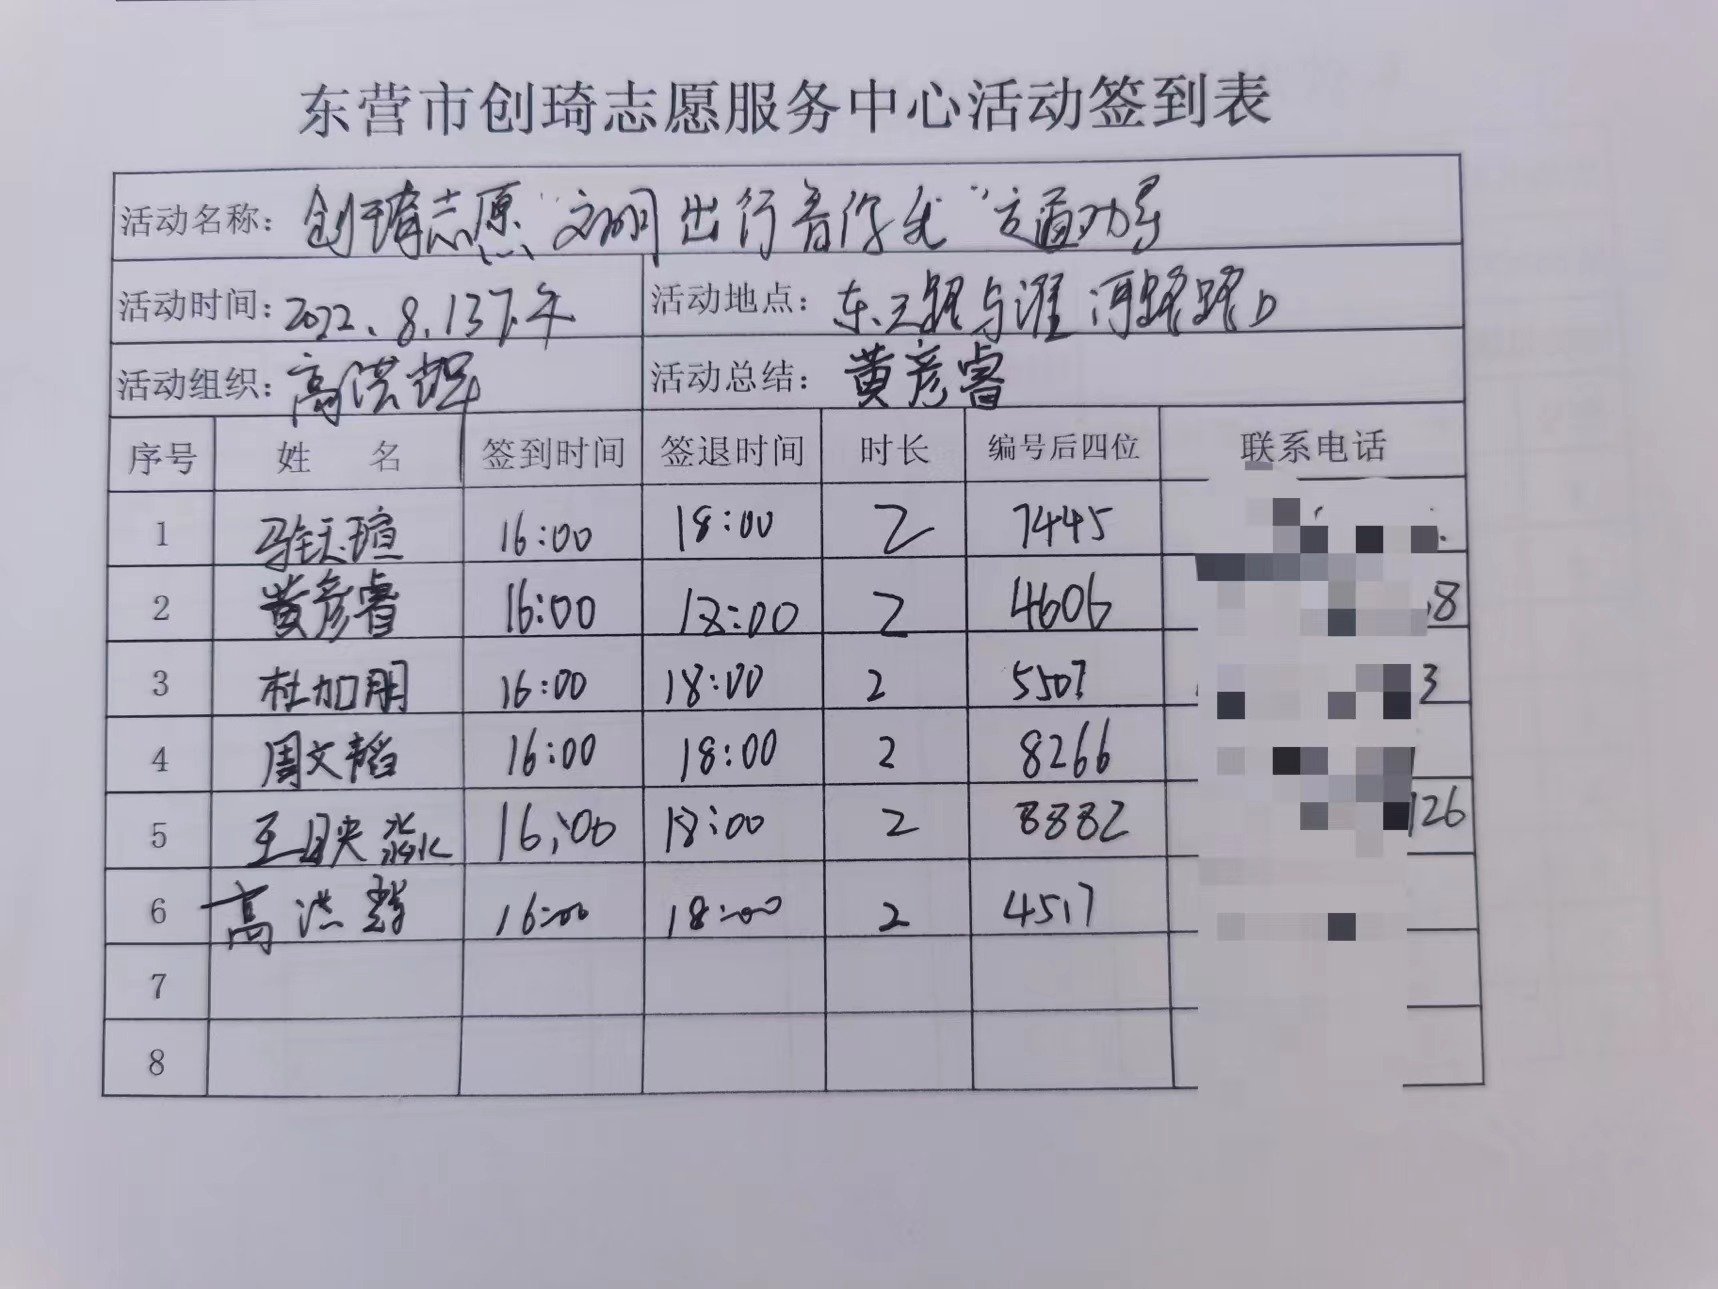 东营市创琦志愿服务中心活动签到表
活动名称：创琦志愿“文明出行 你我”交通劝导
活动时间：2022.8.13下午 活动地点：东三路与淮河路路口
活动组织：高洪 活动总结：黄彦睿
序号 姓 名 签到时间 签退时间 时长 编号后四位 联系电话
1 瑄 16:00 18:00 2 7445
2 黄彦睿 16:00 18:00 2 4606 8
3 杜加朋 16:00 18:00 2 5507 3
4 周文韬 16:00 18:00 2 8266
5 王映淼 16:00 18:00 2 8882 126
6 高洪 16:00 18:00 2 4517
7
8